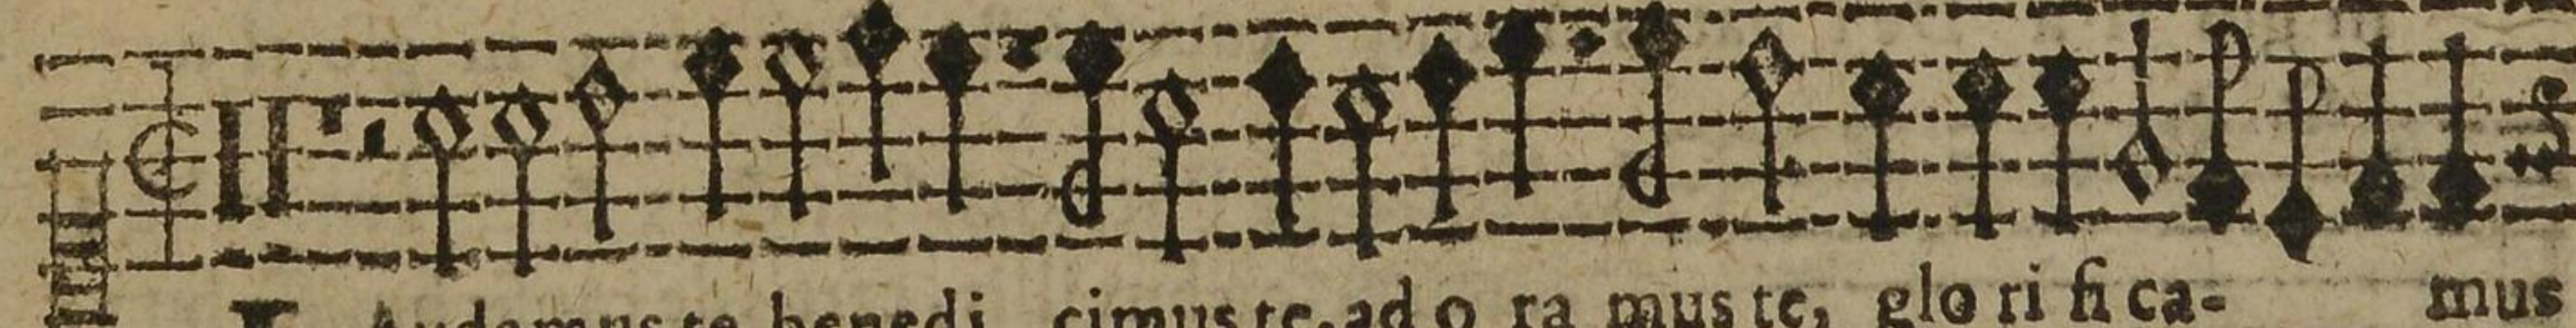 L Audamus te benedi cimus te, ad o ra mus te, glo ri fi ca- mus